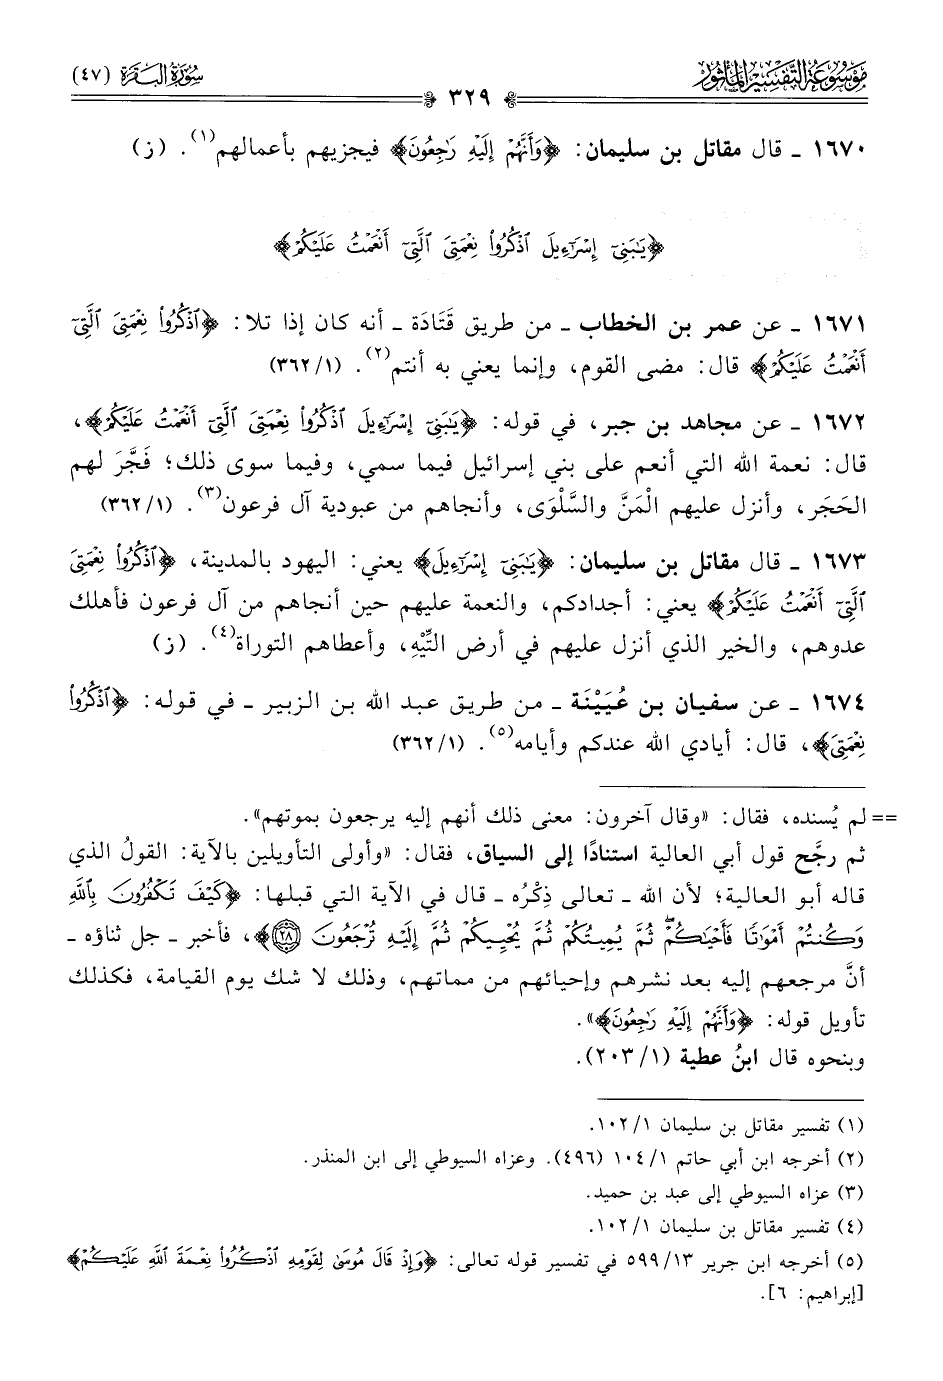 موسوعة التفسير المأثور
سورة البقرة (٤٧)
٣٢٩
١٦٧٠ ـ قال مقاتل بن سليمان: ﴿وَأَنَّهُمْ إِلَيْهِ رَٰجِعُونَ﴾ فيجزيهم بأعمالهم(١). (ز)
﴿يَٰبَنِىٓ إِسْرَٰٓءِيلَ ٱذْكُرُوا۟ نِعْمَتِىَ ٱلَّتِىٓ أَنْعَمْتُ عَلَيْكُمْ﴾
١٦٧١ ـ عن عمر بن الخطاب ـ من طريق قَتَادَة ـ أنه كان إذا تلا: ﴿ٱذْكُرُوا۟ نِعْمَتِىَ ٱلَّتِىٓ
أَنْعَمْتُ عَلَيْكُمْ﴾ قال: مضى القوم، وإنما يعني به أنتم(٢). (١/ ٣٦٢)
١٦٧٢ ـ عن مجاهد بن جبر، في قوله: ﴿يَٰبَنِىٓ إِسْرَٰٓءِيلَ ٱذْكُرُوا۟ نِعْمَتِىَ ٱلَّتِىٓ أَنْعَمْتُ عَلَيْكُمْ﴾،
قال: نعمة الله التي أنعم على بني إسرائيل فيما سمي، وفيما سوى ذلك؛ فَجَّرَ لهم
الحَجَر، وأنزل عليهم الْمَنَّ والسَّلْوَى، وأنجاهم من عبودية آل فرعون(٣). (١/ ٣٦٢)
١٦٧٣ ـ قال مقاتل بن سليمان: ﴿يَٰبَنِىٓ إِسْرَٰٓءِيلَ﴾ يعني: اليهود بالمدينة، ﴿ٱذْكُرُوا۟ نِعْمَتِىَ
ٱلَّتِىٓ أَنْعَمْتُ عَلَيْكُمْ﴾ يعني: أجدادكم، والنعمة عليهم حين أنجاهم من آل فرعون فأهلك
عدوهم، والخير الذي أنزل عليهم في أرض التِّيْهِ، وأعطاهم التوراة(٤). (ز)
١٦٧٤ ـ عن سفيان بن عُيَيْنَة ـ من طريق عبد الله بن الزبير ـ في قوله: ﴿ٱذْكُرُوا۟
نِعْمَتِىَ﴾، قال: أيادي الله عندكم وأيامه(٥). (١/ ٣٦٢)
== لم يُسنده، فقال: «وقال آخرون: معنى ذلك أنهم إليه يرجعون بموتهم».
ثم رجَّح قول أبي العالية استنادًا إلى السياق، فقال: «وأولى التأويلين بالآية: القولُ الذي
قاله أبو العالية؛ لأن الله ـ تعالى ذِكْرُه ـ قال في الآية التي قبلها: ﴿كَيْفَ تَكْفُرُونَ بِٱللَّهِ
وَكُنتُمْ أَمْوَٰتًا فَأَحْيَٰكُمْ ثُمَّ يُمِيتُكُمْ ثُمَّ يُحْيِيكُمْ ثُمَّ إِلَيْهِ تُرْجَعُونَ ٢٨﴾، فأخبر ـ جل ثناؤه ـ
أنَّ مرجعهم إليه بعد نشرهم وإحيائهم من مماتهم، وذلك لا شك يوم القيامة، فكذلك
تأويل قوله: ﴿وَأَنَّهُمْ إِلَيْهِ رَٰجِعُونَ﴾».
وبنحوه قال ابنُ عطية (١/ ٢٠٣).
(١) تفسير مقاتل بن سليمان ١/ ١٠٢.
(٢) أخرجه ابن أبي حاتم ١/ ١٠٤ (٤٩٦). وعزاه السيوطي إلى ابن المنذر.
(٣) عزاه السيوطي إلى عبد بن حميد.
(٤) تفسير مقاتل بن سليمان ١/ ١٠٢.
(٥) أخرجه ابن جرير ١٣/ ٥٩٩ في تفسير قوله تعالى: ﴿وَإِذْ قَالَ مُوسَىٰ لِقَوْمِهِ ٱذْكُرُوا۟ نِعْمَةَ ٱللَّهِ عَلَيْكُمْ﴾
[إبراهيم: ٦].